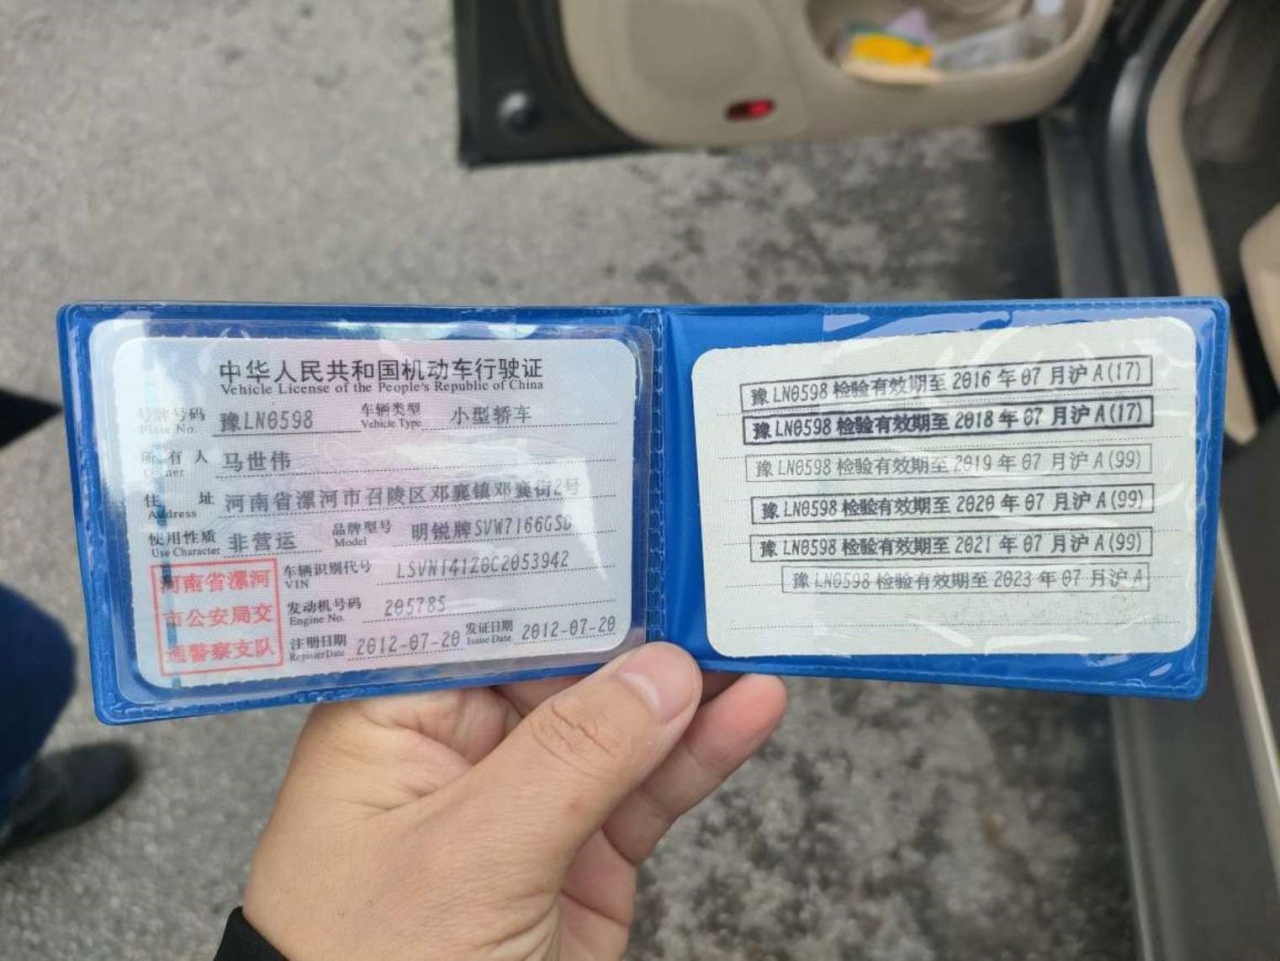 中华人民共和国机动车行驶证
Vehicle License of the People's Republic of China
号牌号码 豫LN0598 车辆类型 小型轿车
Plate No. Vehicle Type
所有人 马世伟
住址 河南省漯河市召陵区邓襄镇邓襄街2号
Address
使用性质 非营运 品牌型号 明锐牌SVW7166GSD
Use Character Model
车辆识别代号 LSVNT4120C2053942
VIN
发动机号码 205785
Engine No.
注册日期 2012-07-20 发证日期 2012-07-20
Register Date Issue Date
河南省漯河
市公安局交
通警察支队
豫LN0598 检验有效期至 2016 年 07 月沪 A(17)
豫LN0598 检验有效期至 2018 年 07 月沪 A(17)
豫LN0598 检验有效期至 2019 年 07 月沪 A(99)
豫LN0598 检验有效期至 2020 年 07 月沪 A(99)
豫LN0598 检验有效期至 2021 年 07 月沪 A(99)
豫LN0598 检验有效期至 2023 年 07 月沪 A